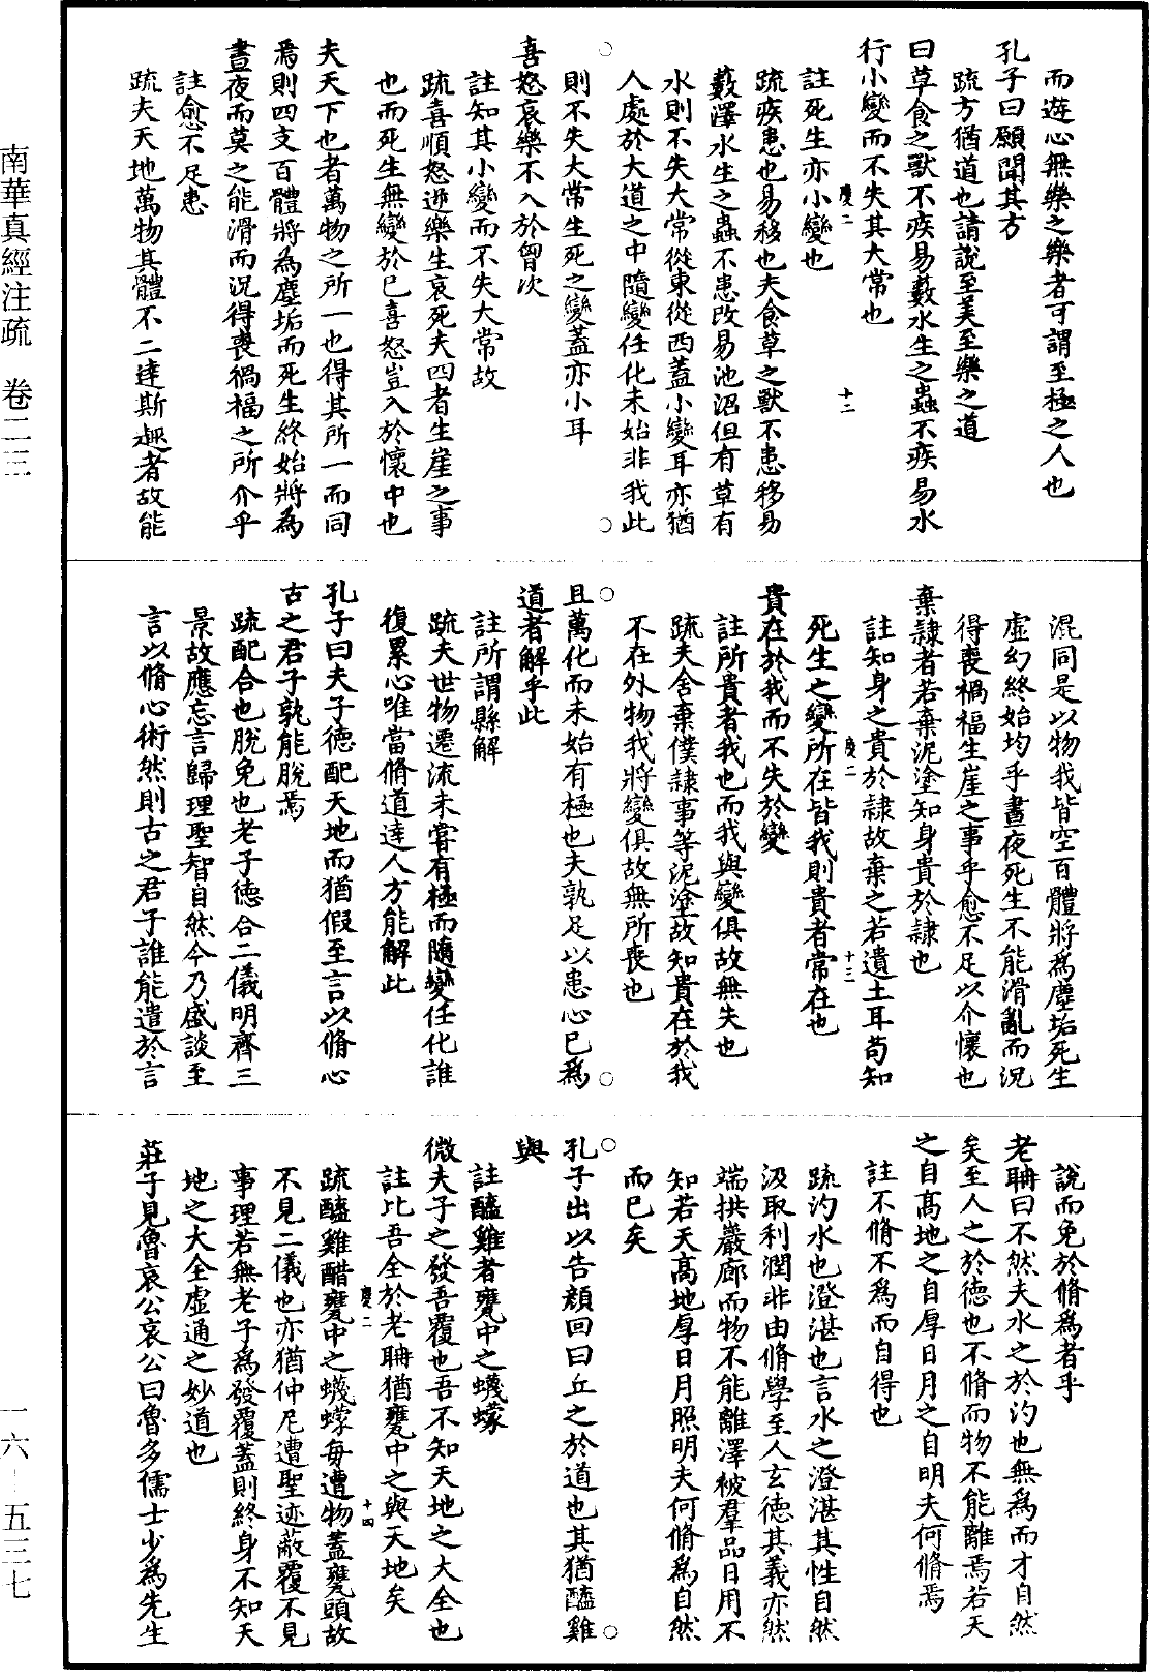 而遊心無樂之樂者可謂至極之人也
孔子曰願聞其方
疏方猶道也請說至美至樂之道
曰草食之獸不疾易藪水生之蟲不疾易水
行小變而不失其大常也
註死生亦小變也
慶二
十二
疏疾患也易移也夫食草之獸不患移易
藪澤水生之蟲不患改易池沼但有草有
水則不失大常從東從西蓋小變耳亦猶
人處於大道之中隨變任化未始非我此
則不失大常生死之變蓋亦小耳
喜怒哀樂不入於曾次
註知其小變而不失大常故
疏喜順怒逆樂生哀死夫四者生崖之事
也而死生無變於已喜怒豈入於懷中也
夫天下也者萬物之所一也得其所一而同
焉則四支百體將為塵垢而死生終始將為
晝夜而莫之能滑而況得喪禍福之所介乎
註愈不足患
疏夫天地萬物其體不二達斯趣者故能
混同是以物我皆空百體將為塵垢死生
虛幻終始均乎晝夜死生不能滑亂而況
得喪禍福生崖之事乎愈不足以介懷也
棄隸者若棄泥塗知身貴於隸也
註知身之貴於隸故棄之若遺土耳苟知
慶二
十三
死生之變所在皆我則貴者常在也
貴在於我而不失於變
註所貴者我也而我與變俱故無失也
疏夫舍棄僕隸事等泥塗故知貴在於我
不在外物我將變俱故無所喪也
且萬化而未始有極也夫孰足以患心已為
道者解乎此
註所謂縣解
疏夫世物遷流未甞有極而隨變任化誰
復累心唯當脩道達人方能解此
孔子曰夫子德配天地而猶假至言以脩心
古之君子孰能脫焉
疏配合也脫免也老子德合二儀明齊三
景故應忘言歸理聖智自然今乃盛談至
言以脩心術然則古之君子誰能遣於言
說而免於脩為者乎
老聃曰不然夫水之於汋也無為而才自然
矣至人之於德也不脩而物不能離焉若天
之自高地之自厚日月之自明夫何脩焉
註不脩不為而自得也
疏汋水也澄湛也言水之澄湛其性自然
汲取利潤非由脩學至人玄德其義亦然
端拱巖廊而物不能離澤被羣品日用不
知若天高地厚日月照明夫何脩為自然
而已矣
孔子出以告顏回曰丘之於道也其猶醯雞
與
註醯雞者甕中之蠛蠓
微夫子之發吾覆也吾不知天地之大全也
註比吾全於老聃猶甕中之與天地矣
慶二
十四
疏醯雞醋甕中之蠛蠓每遭物蓋甕頭故
不見二儀也亦猶仲尼遭聖迹蔽覆不見
事理若無老子為發覆蓋則終身不知天
地之大全虛通之妙道也
莊子見魯哀公哀公曰魯多儒士少為先生
南華真經注疏 卷二三
一六—五三七